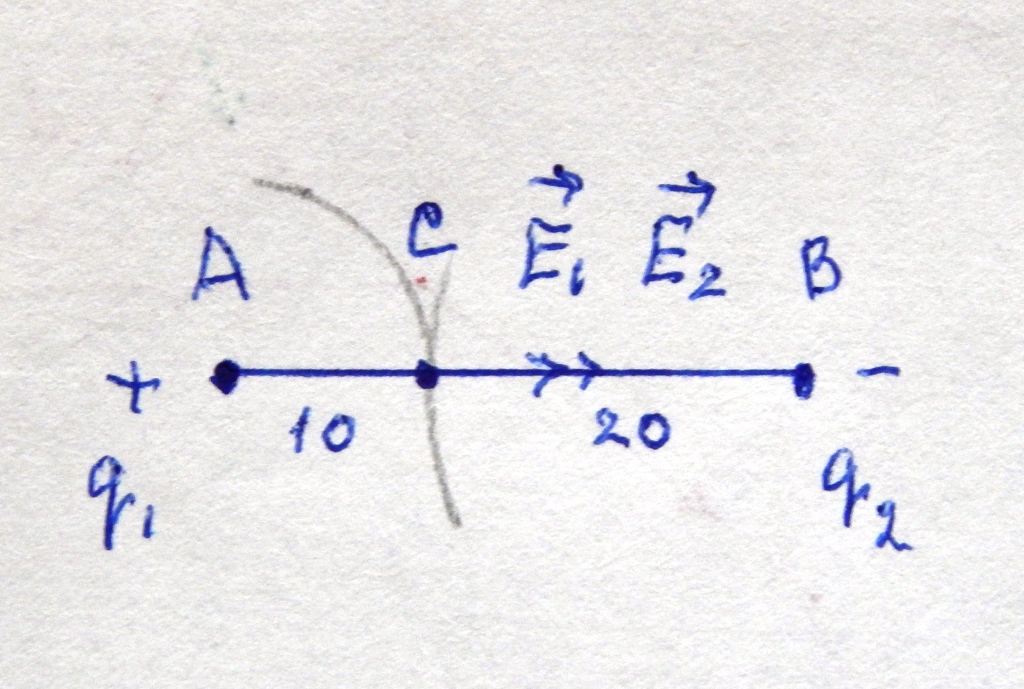 A C E₁ E₂ B
+ -
10 20
q₁ q₂